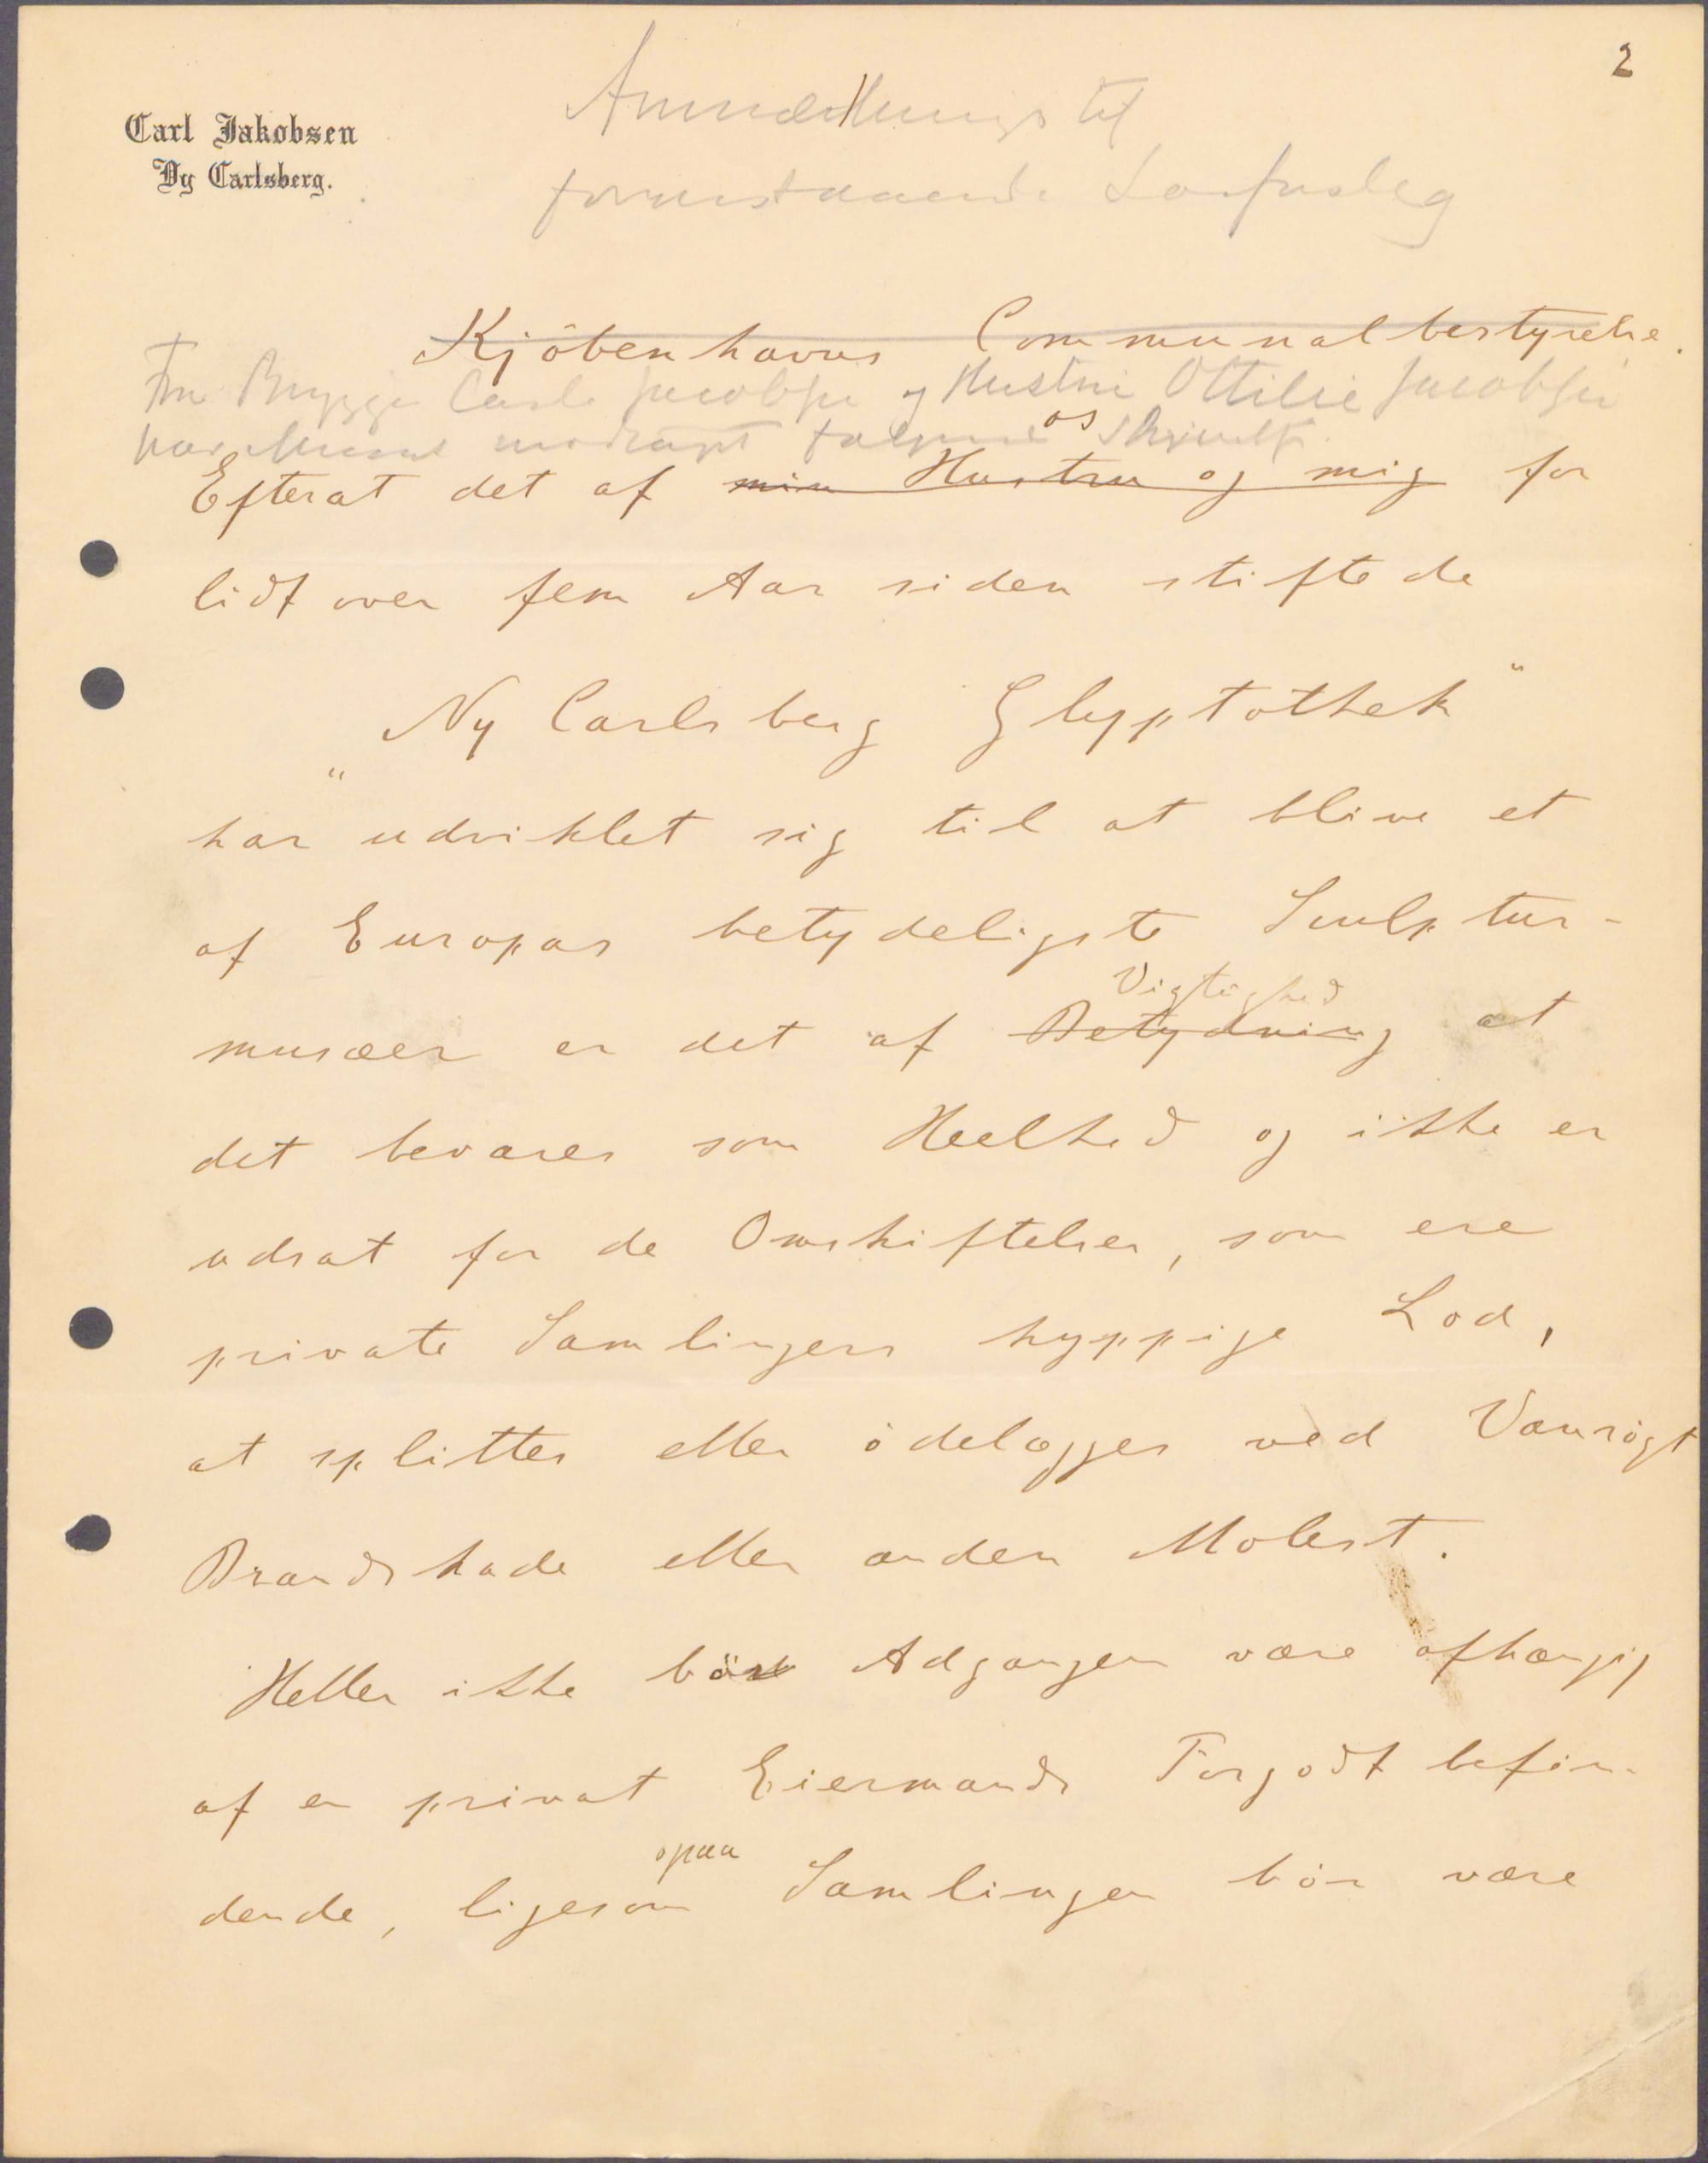 2
Carl Jakobsen
Ny Carlsberg.
Anmærkninger til
foranstaaende Lovforslag
Kjöbenhavns Communalbestyrelse.
Fra Brygger Carl Jacobsen og Hustru Ottilie Jacobsen
har modtaget følgende Skrivelse
os
Efterat det af min Hustru og mig for
lidt over fem Aar siden stiftede
„Ny Carlsberg Glyptothek"
har udviklet sig til at blive et
af Europas betydeligste Sculptur-
Vigtighed
musæer er det af Betydning at
det bevares som Heelhed og ikke er
udsat for de Omskiftelser, som ere
private Samlingers hyppige Lod,
at splittes eller ödelægges ved Vanrögt
Brandskade eller anden Molest.
Heller ikke bör Adgangen være afhængig
af en privat Eiermands Forgodtbefin-
opaa
dende, ligesom Samlingen bör være